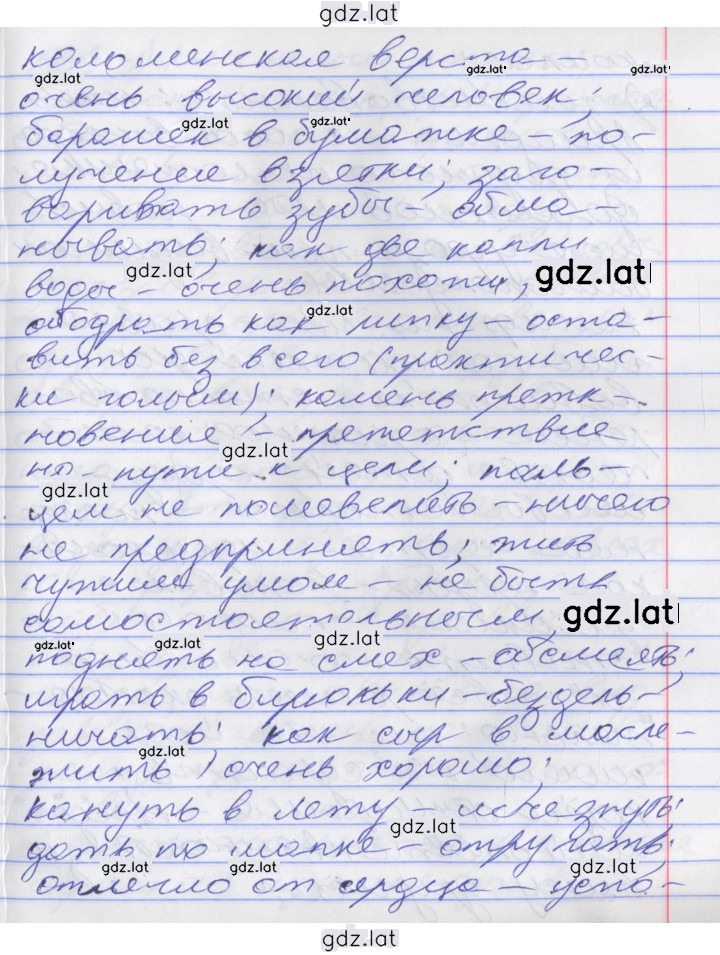 gdz.lat
коломенская верста –
очень высокий человек;
барашек в бумажке – по-
лучение взятки; заго-
варивать зубы – обма-
нывать; как две капли
воды – очень похожи;
ободрать как липку – оста-
вить без всего (практичес-
ки голым); камень претк-
новения – препятствие
на пути к цели; паль-
цем не пошевелить – ничего
не предпринять; жить
чужим умом – не быть
самостоятельным;
поднять на смех – обсмеять;
играть в бирюльки – бездель-
ничать; как сыр в масле –
жить очень хорошо;
кануть в лету – исчезнуть;
дать по шапке – отругать;
отлегло от сердца – успо-
gdz.lat